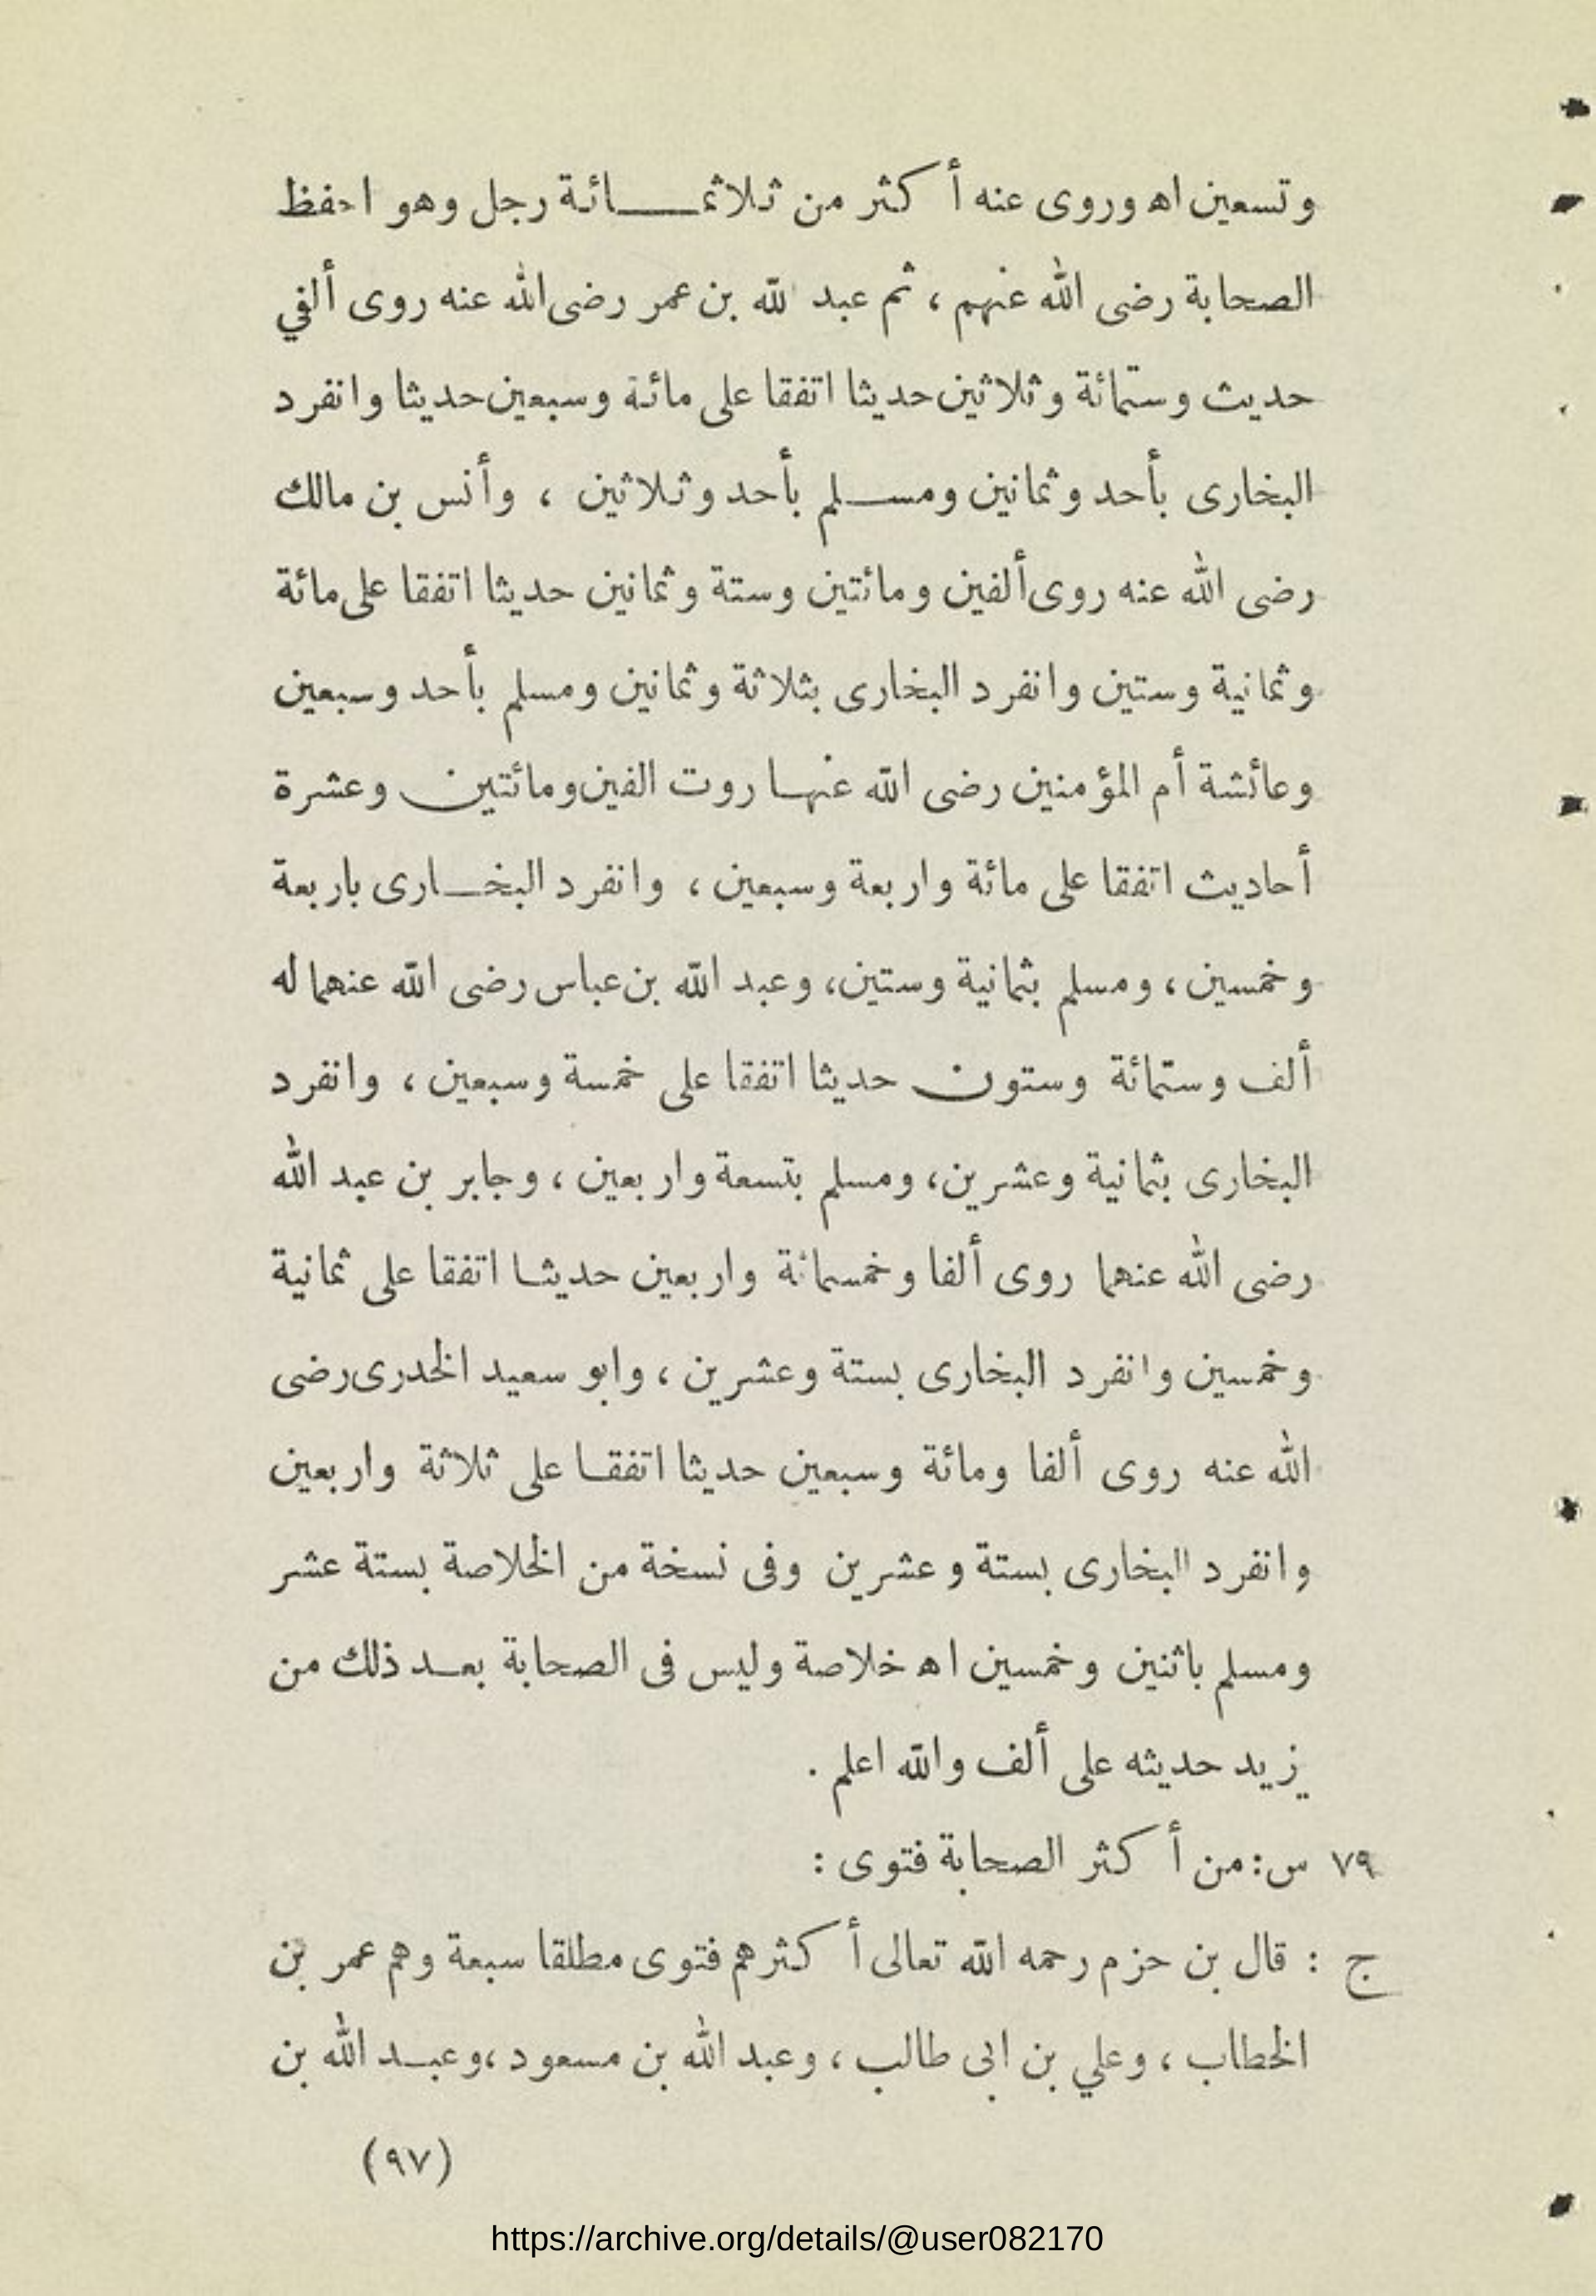 وتسعين اه وروى عنه أكثر من ثلاثمائة رجل وهو احفظ
الصحابة رضى الله عنهم ، ثم عبد لله بن عمر رضى الله عنه روى ألفي
حديث وستمائة وثلاثين حديثا اتفقا على مائة وسبعين حديثا وانفرد
البخارى بأحد وثمانين ومسلم بأحد وثلاثين ، وأنس بن مالك
رضى الله عنه روى ألفين ومائتين وستة وثمانين حديثا اتفقا على مائة
وثمانية وستين وانفرد البخارى بثلاثة وثمانين ومسلم بأحد وسبعين
وعائشة أم المؤمنين رضى الله عنها روت الفين ومائتين وعشرة
أحاديث اتفقا على مائة واربعة وسبعين ، وانفرد البخارى باربعة
وخمسين ، ومسلم بثمانية وستين، وعبد الله بن عباس رضى الله عنهما له
ألف وستمائة وستون حديثا اتفقا على خمسة وسبعين ، وانفرد
البخارى بثمانية وعشرين، ومسلم بتسعة واربعين ، وجابر بن عبد الله
رضى الله عنهما روى ألفا وخمسمائة واربعين حديثا اتفقا على ثمانية
وخمسين وانفرد البخارى بستة وعشرين ، وابو سعيد الخدرى رضى
الله عنه روى ألفا ومائة وسبعين حديثا اتفقا على ثلاثة واربعين
وانفرد البخارى بستة وعشرين وفى نسخة من الخلاصة بستة عشر
ومسلم باثنين وخمسين اه خلاصة وليس فى الصحابة بعد ذلك من
يزيد حديثه على ألف والله اعلم .
٧٩ س: من أكثر الصحابة فتوى :
ج : قال بن حزم رحمه الله تعالى أكثرهم فتوى مطلقا سبعة وهم عمر بن
الخطاب ، وعلي بن ابى طالب ، وعبد الله بن مسعود ،وعبد الله بن
(٩٧)
https://archive.org/details/@user082170